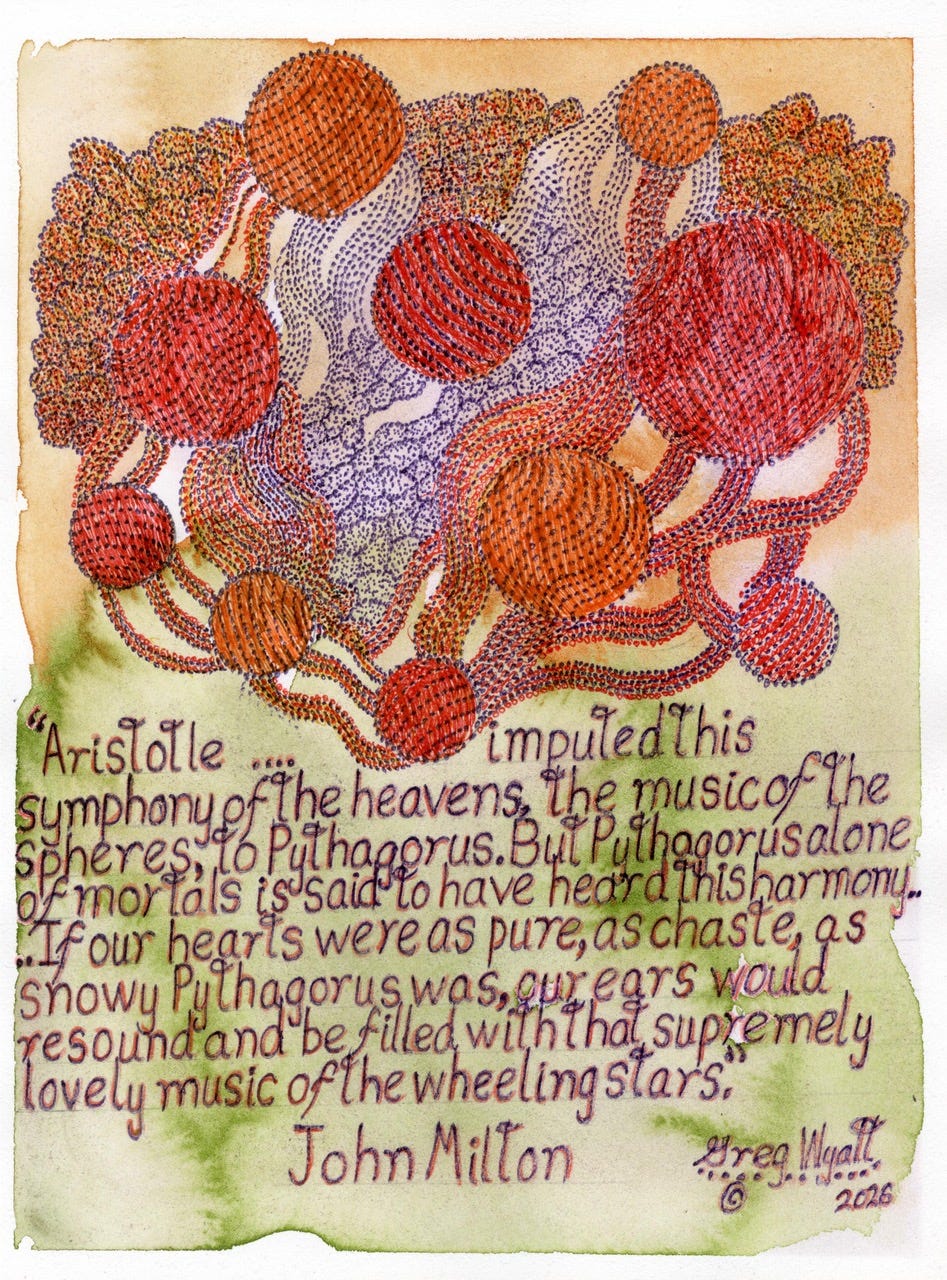 "Aristotle .... imputed this
symphony of the heavens, the music of the
spheres, to Pythagorus. But Pythagorus alone
of mortals is said to have heard this harmony..
..If our hearts were as pure, as chaste, as
snowy Pythagorus was, our ears would
resound and be filled with that supremely
lovely music of the wheeling stars."
John Milton
Greg Wyatt
© 2026